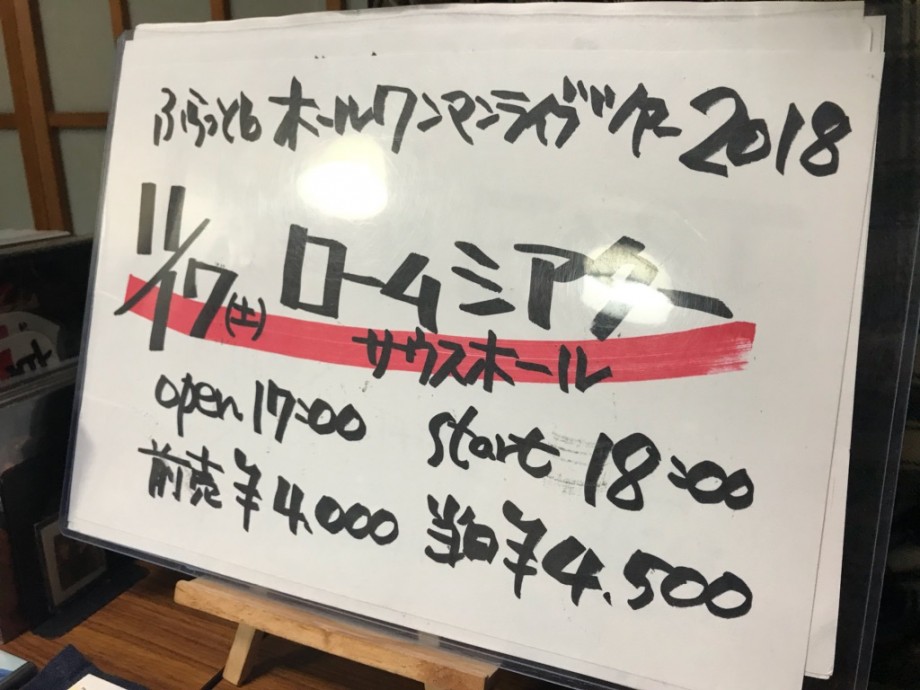 ふらっとも ホールワンマンライブツアー2018
11/17(土) ロームシアター
サウスホール
open 17:00 start 18:00
前売¥4,000 当日¥4,500